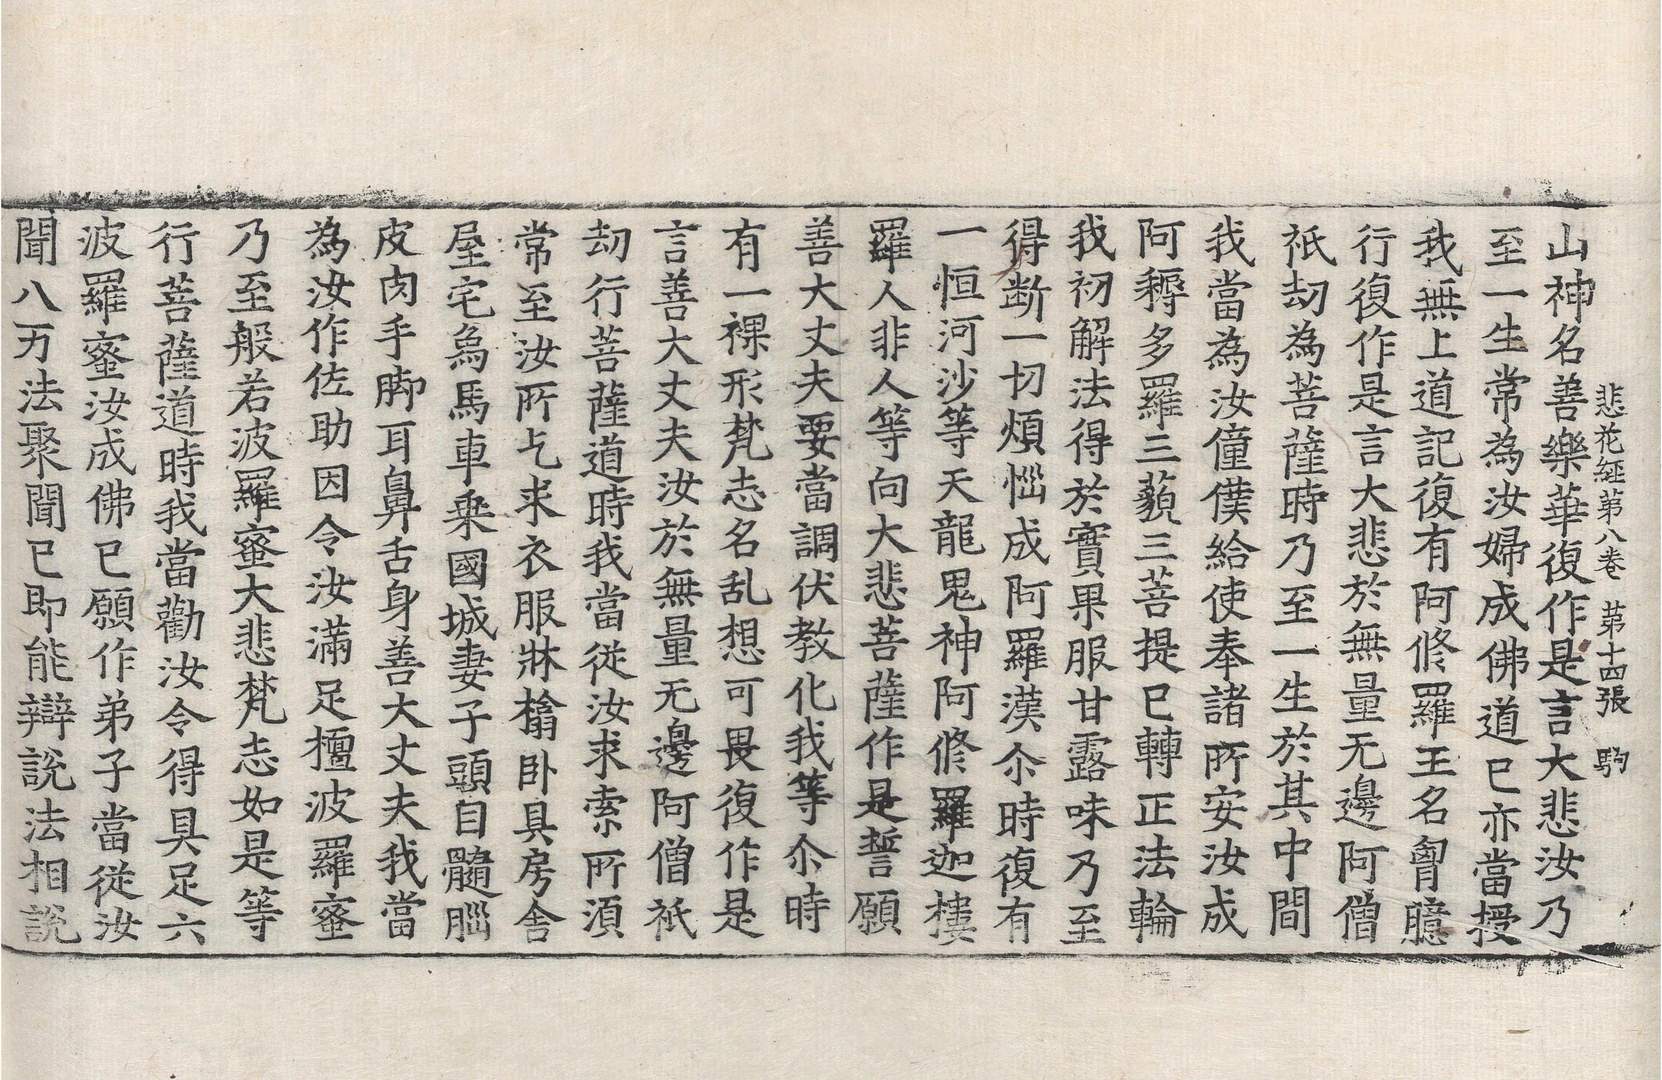 悲花經第八卷 第十四張 駒
山神名善樂華復作是言大悲汝乃
至一生常為汝婦成佛道已亦當授
我無上道記復有阿修羅王名胷臆
行復作是言大悲於無量无邊阿僧
祇劫為菩薩時乃至一生於其中間
我當為汝僮僕給使奉諸所安汝成
阿耨多羅三藐三菩提已轉正法輪
我初解法得於實果服甘露味乃至
得断一切煩惱成阿羅漢尒時復有
一恒河沙等天龍鬼神阿修羅迦樓
羅人非人等向大悲菩薩作是誓願
善大丈夫要當調伏教化我等尒時
有一裸形梵志名乱想可畏復作是
言善大丈夫汝於無量无邊阿僧祇
劫行菩薩道時我當從汝求索所湏
常至汝所乞求衣服牀榻卧具房舍
屋宅烏馬車乗國城妻子頭目髓腦
皮肉手脚耳鼻舌身善大丈夫我當
為汝作佐助因令汝滿足檀波羅蜜
乃至般若波羅蜜大悲梵志如是等
行菩薩道時我當勸汝令得具足六
波羅蜜汝成佛已願作弟子當從汝
聞八万法聚聞已即能辯說法相說